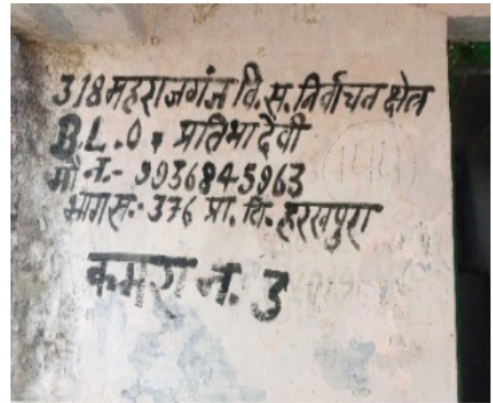 318 महराजगंज वि.स. निर्वाचन क्षेत्र
B.L.O. प्रतिभा देवी
मो न.- 9936845963
भाग स.- 376 प्रा. वि. हरखपुरा
कमरा न. 3